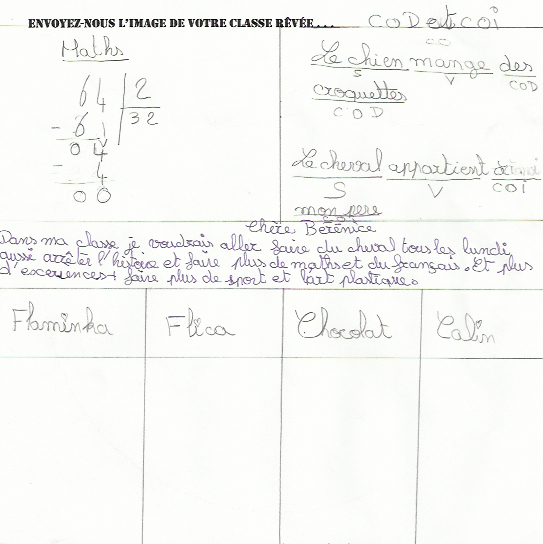 ENVOYEZ-NOUS L'IMAGE DE VOTRE CLASSE RÊVÉE . . . .
Maths
64 2
- 6 32
04
- 4
00
COD et COI
Le chien mange des
S V COD
croquettes
COD
Le cheval appartient
S V COI
mon père
Chère Bérénice
Dans ma classe je voudrais aller faire du cheval tous les lundi
aussi arrêter l'histoire et faire plus de maths et du français. Et plus
d'exceriences + faire plus de sport et l'art plastique.
Flaminka Flica Chocolat Calin